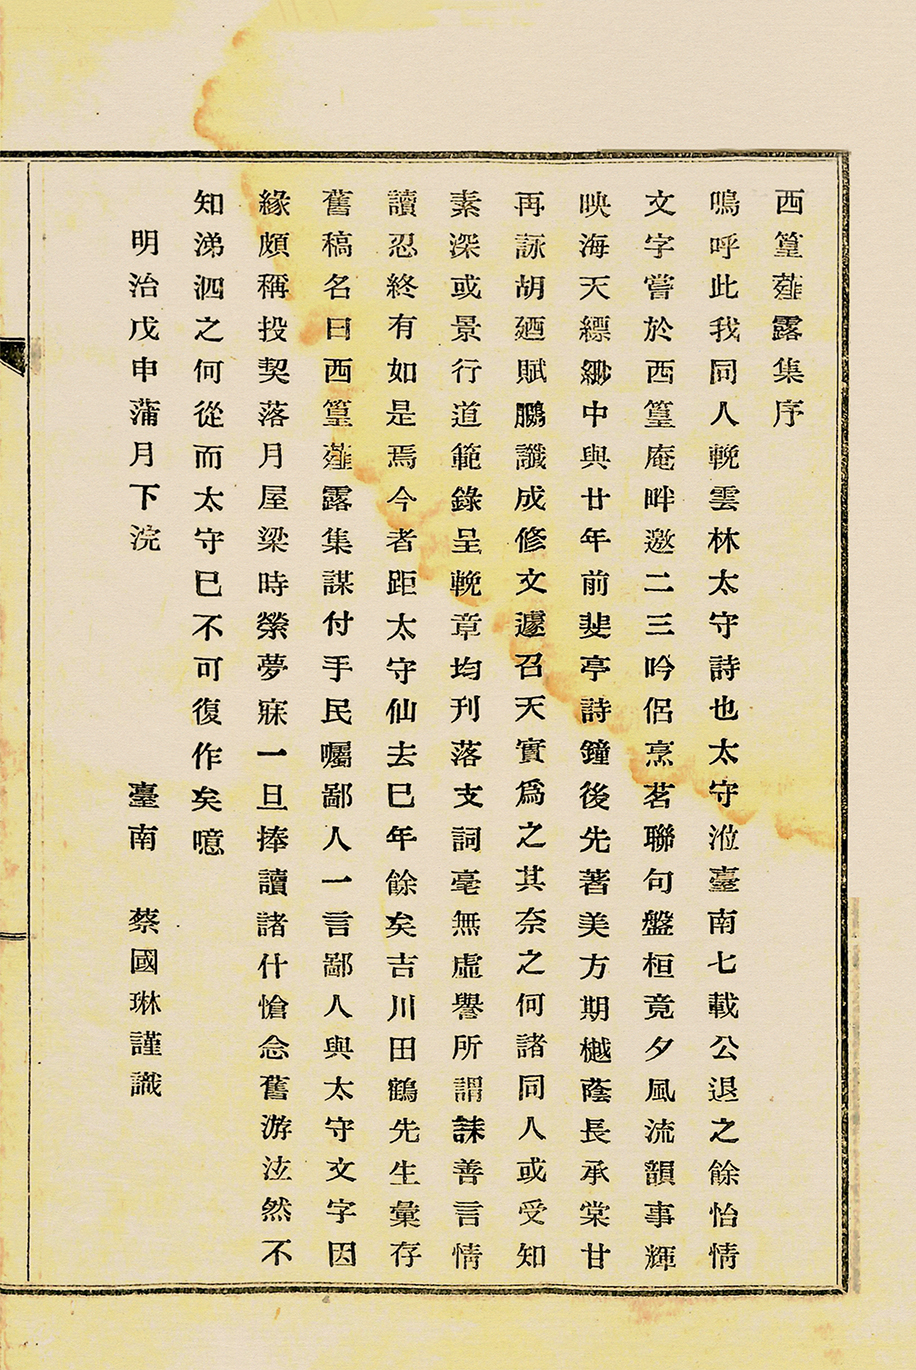 西篁薤露集序
鳴呼此我同人輓雲林太守詩也太守涖臺南七載公退之餘怡情
文字嘗於西篁庵畔邀二三吟侶烹茗聯句盤桓竟夕風流韻事輝
映海天縹緲中與廿年前斐亭詩鐘後先著美方期樾蔭長承棠甘
再詠胡廼賦鵬讖成修文遽召天實爲之其奈之何諸同人或受知
素深或景行道範錄呈輓章均刋落支詞毫無虛譽所謂誄善言情
讀忍終有如是焉今者距太守仙去已年餘矣吉川田鶴先生彙存
舊稿名曰西篁薤露集謀付手民囑鄙人一言鄙人與太守文字因
緣頗稱投契落月屋梁時縈夢寐一旦捧讀諸什愴念舊游泫然不
知涕泗之何從而太守已不可復作矣噫
明治戊申蒲月下浣
臺南 蔡國琳謹識